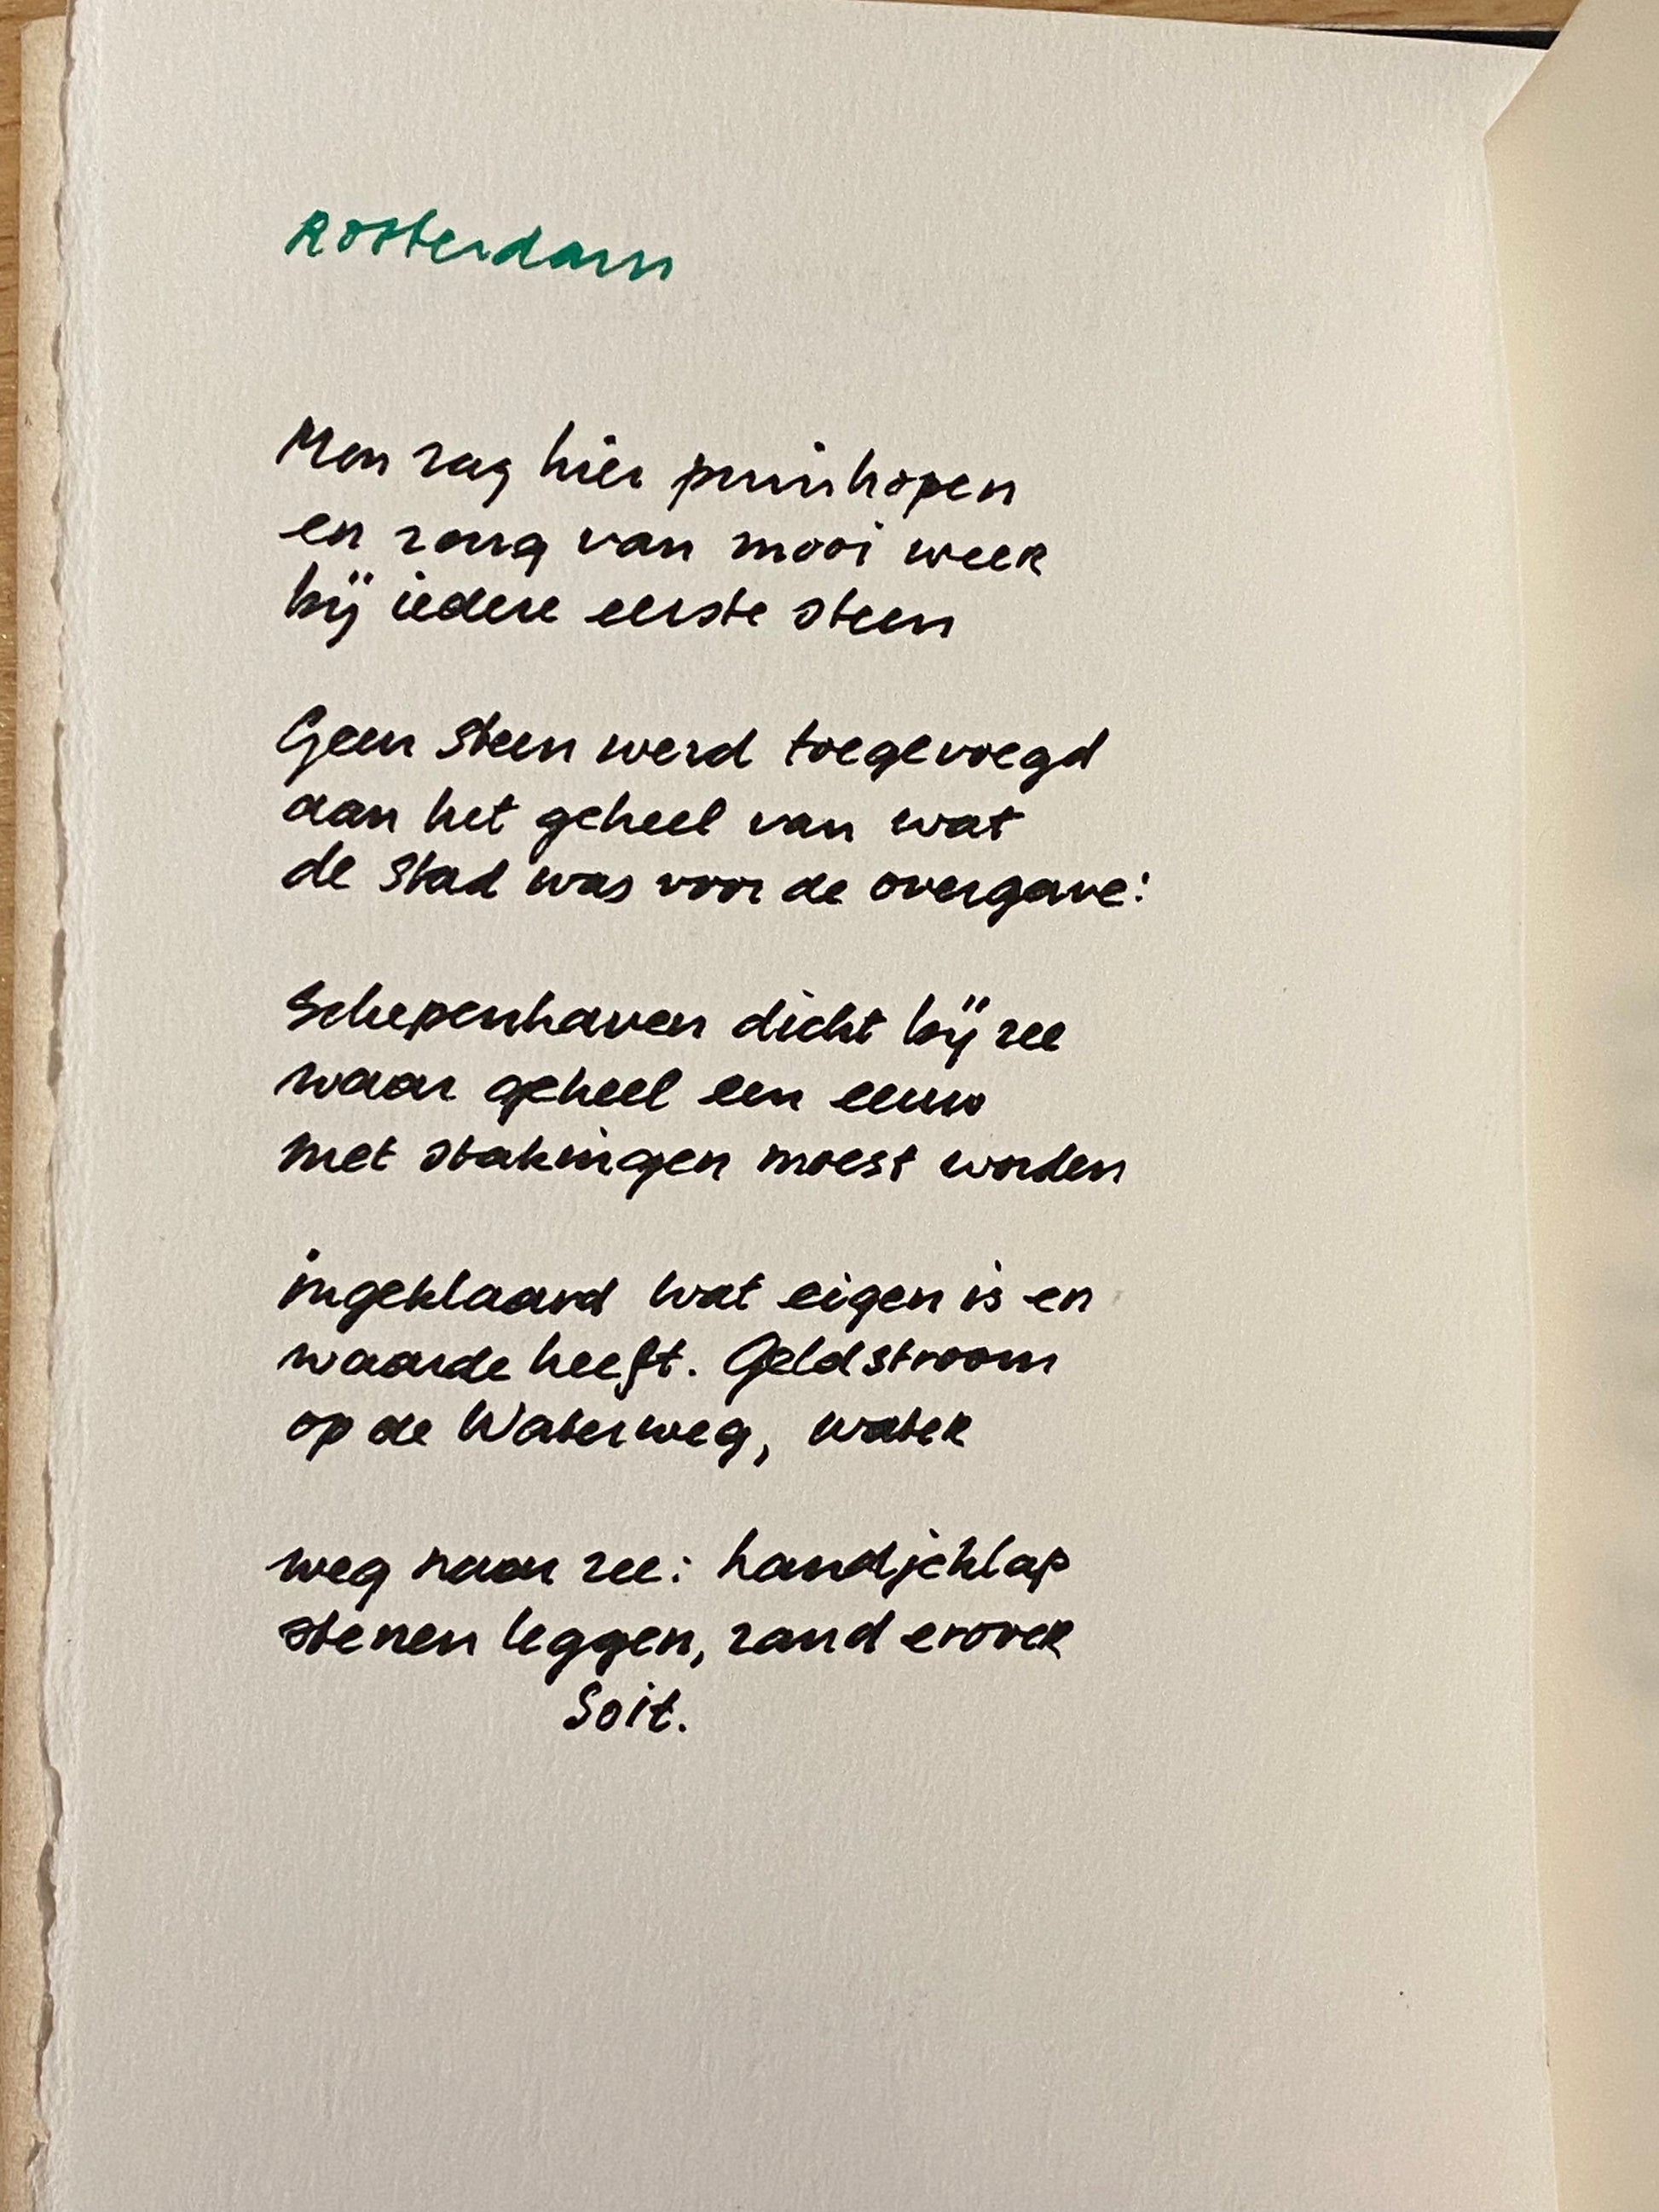 Rotterdam
Men zag hier puinhopen
en zong van mooi weer
bij iedere eerste steen
Geen steen werd toegevoegd
aan het geheel van wat
de stad was voor de overgave:
Schepenhaven dicht bij zee
waar geheel een eeuw
met stakingen moest worden
ingeklaard wat eigen is en
waarde heeft. Geldstroom
op de Waterweg, water
weg naar zee: handjeklap
stenen leggen, zand erover
Soit.